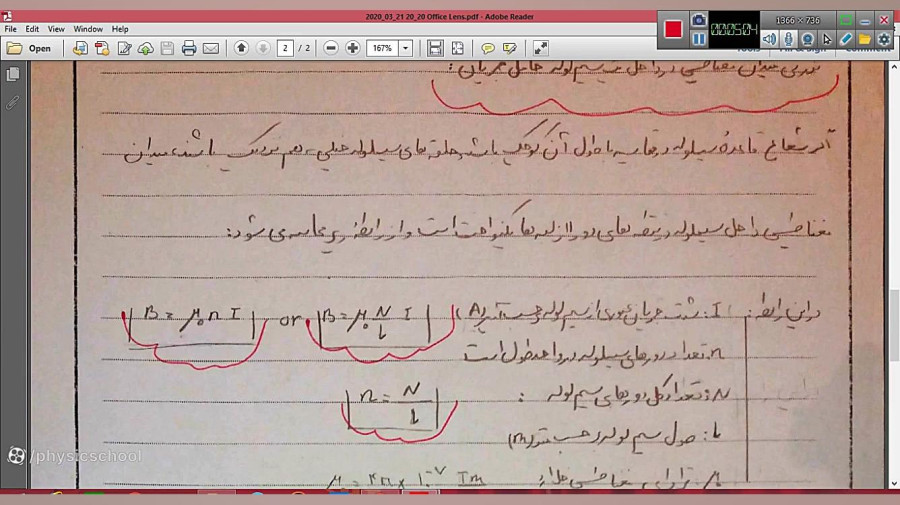 2020_03_21 20_20 Office Lens.pdf - Adobe Reader
1366 × 736
File Edit View Window Help
Open
2 / 2
167%
00:05:04
Tools
Comment
میدان مغناطیسی در داخل سیم لوله حامل جریان:
اگر شعاع قاعدهٔ سیملوله در مقایسه با طول آن کوچک باشد و حلقه های سیملوله خیلی به هم نزدیک باشند، میدان
مغناطیسی داخل سیملوله در نقطه های دور از لبه ها یکنواخت است و از رابطه زیر محاسبه می شود:
در این رابطه: I: شدت جریان عبوری از سیم لوله بر حسب آمپر (A) B = μ₀ N/L I or B = μ₀ n I
n: تعداد دورهای سیملوله در واحد طول است
N: تعداد کل دورهای سیم لوله: n = N/L
L: طول سیم لوله بر حسب متر (m)
/physicschool